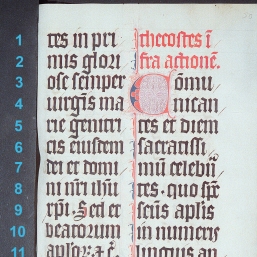 1
2
3
4
5
6
7
8
9
10
11
tes in pri
mis glori
ose semper
uirgīs ma
rie genitri
cis eiusdem
dei et domi
ni nr̄i ihū
xp̄i. Sed et
beatorum
aplōꝝ a c̄
thecostes ī
fra actionē.
Cōmu
nican
tes et diem
sacratissi
mū celebrā
tes. quo sp̄c
sctūs aplis
in numeris
linguis ap